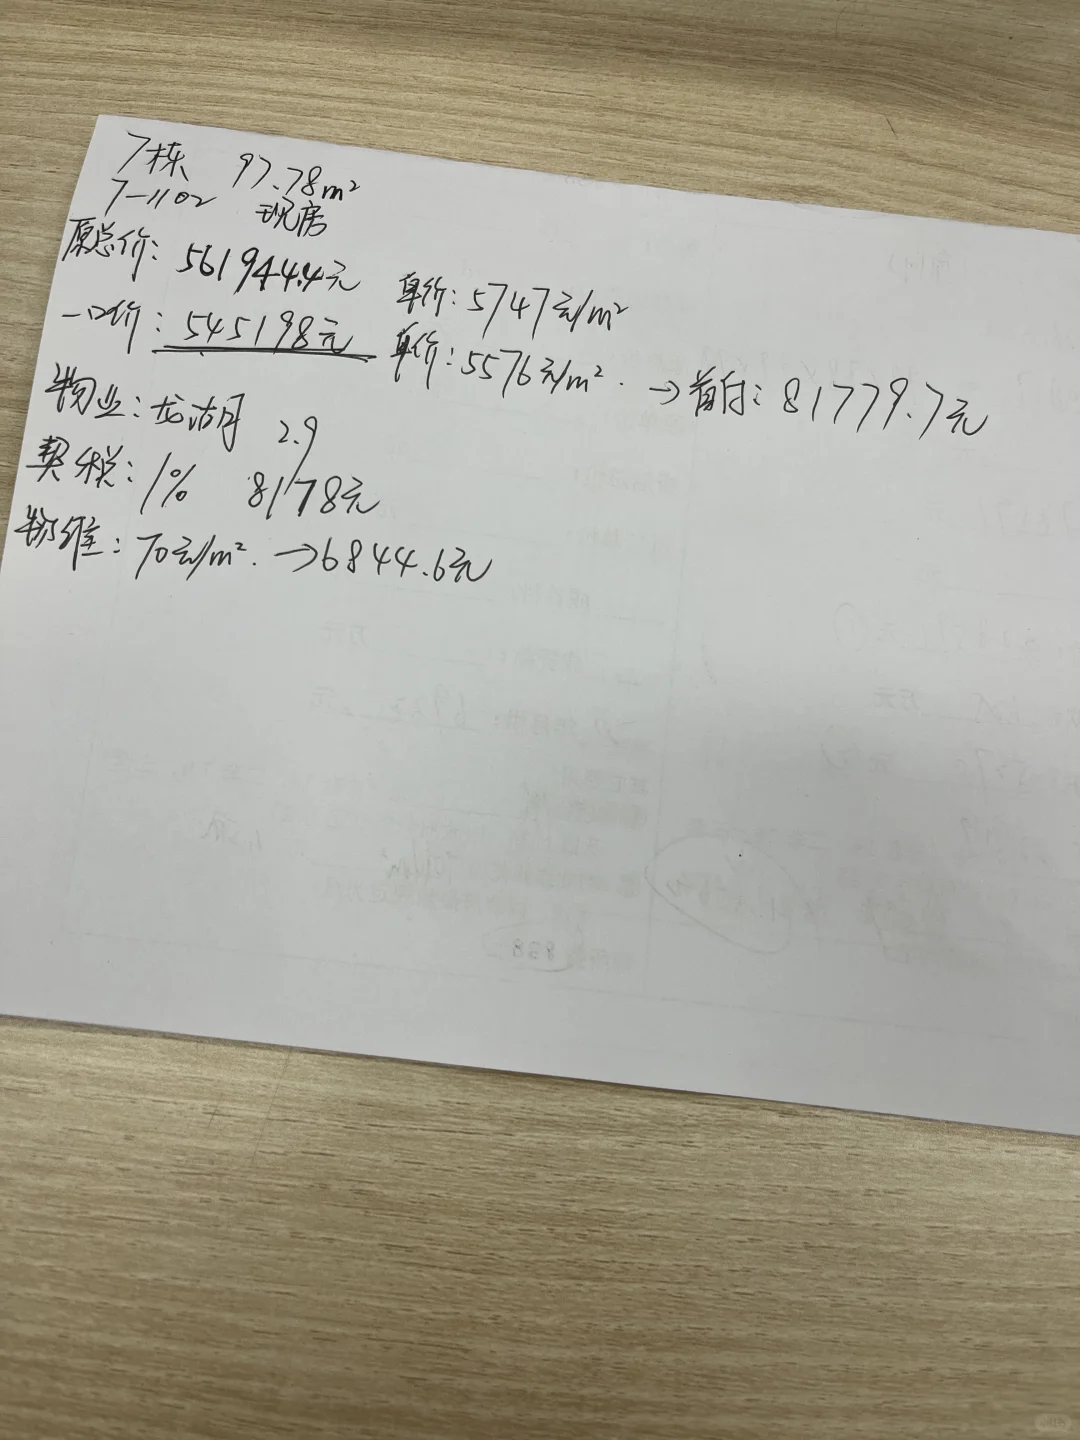 7栋 97.78m²
7-1102 现房
原总价: 561944.4元 单价: 5747元/m²
一口价: 545198元 单价: 5576元/m². →首付: 81779.7元
物业: 龙湖 2.9
契税: 1% 8178元
物维: 70元/m². →6844.6元